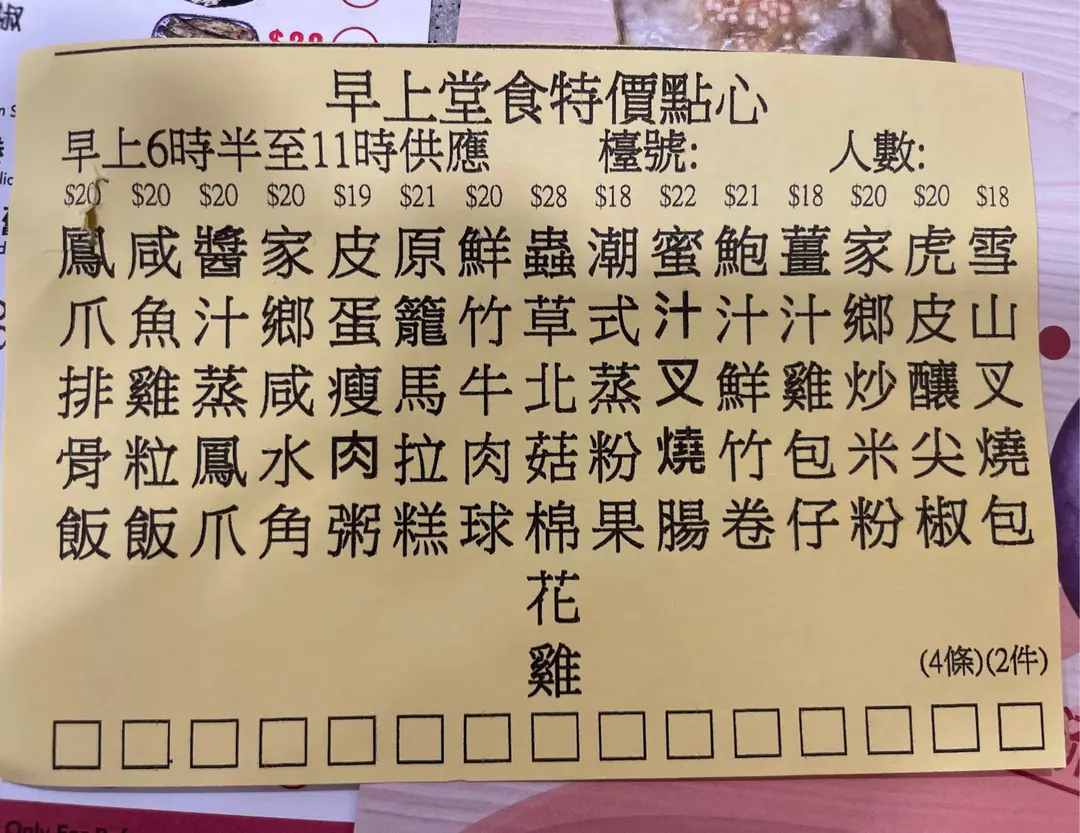 椒
$22
早上堂食特價點心
早上6時半至11時供應 檯號: 人數:
$20 $20 $20 $20 $19 $21 $20 $28 $18 $22 $21 $18 $20 $20 $18
鳳爪排骨飯
咸魚雞粒飯
醬汁蒸鳳爪
家鄉咸水角
皮蛋瘦肉粥
原籠馬拉糕
鮮竹牛肉球
蟲草北菇棉花雞
潮式蒸粉果
蜜汁叉燒腸
鮑汁鮮竹卷
薑汁雞包仔
家鄉炒米粉
虎皮釀尖椒
雪山叉燒包
(4條)(2件)